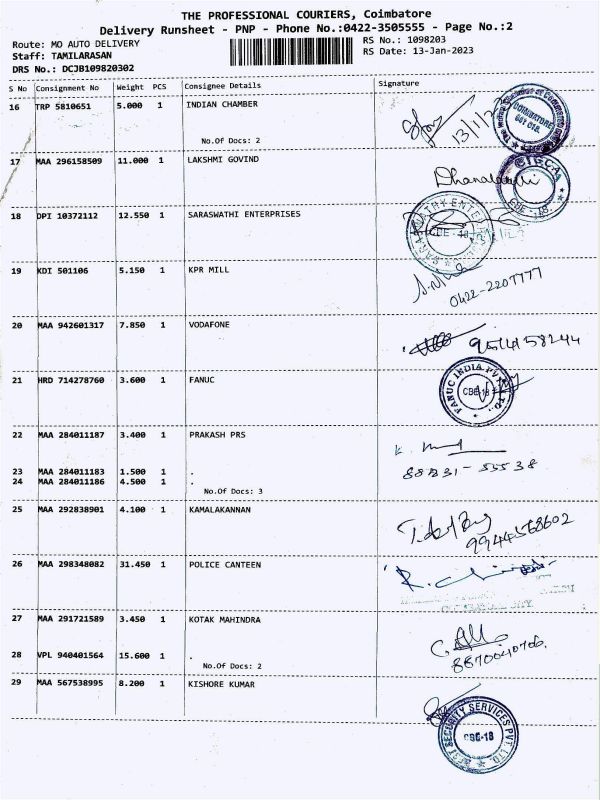 THE PROFESSIONAL COURIERS, Coimbatore
Delivery Runsheet - PNP - Phone No.:0422-3505555 - Page No.:2
Route: MO AUTO DELIVERY
RS No.: 1098203
Staff: TAMILARASAN
RS Date: 13-Jan-2023
DRS No.: DCJB109820302
S No Consignment No Weight PCS Consignee Details Signature
16 TRP 5810651 5.000 1 INDIAN CHAMBER
13/1/2
COIMBATORE
641 018.
No.Of Docs: 2
17 MAA 296158509 11.000 1 LAKSHMI GOVIND
Dhanalakshmi
18 DPI 10372112 12.550 1 SARASWATHI ENTERPRISES
CBE - 18
19 KDI 501106 5.150 1 KPR MILL
0422-2207777
20 MAA 942601317 7.850 1 VODAFONE
9514158244
21 HRD 714278760 3.600 1 FANUC
FANUC INDIA PVT LTD.
CBE-18
22 MAA 284011187 3.400 1 PRAKASH PRS
88831-55538
23 MAA 284011183 1.500 1 .
24 MAA 284011186 4.500 1 .
No.Of Docs: 3
25 MAA 292838901 4.100 1 KAMALAKANNAN
9944568602
26 MAA 298348082 31.450 1 POLICE CANTEEN
27 MAA 291721589 3.450 1 KOTAK MAHINDRA
8870040706.
28 VPL 940401564 15.600 1 .
No.Of Docs: 2
29 MAA 567538995 8.200 1 KISHORE KUMAR
SECURITY SERVICES PVT. LTD.
CBE-18